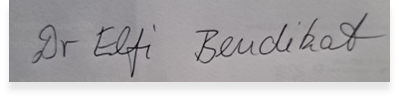 Dr Elfi Bendikat